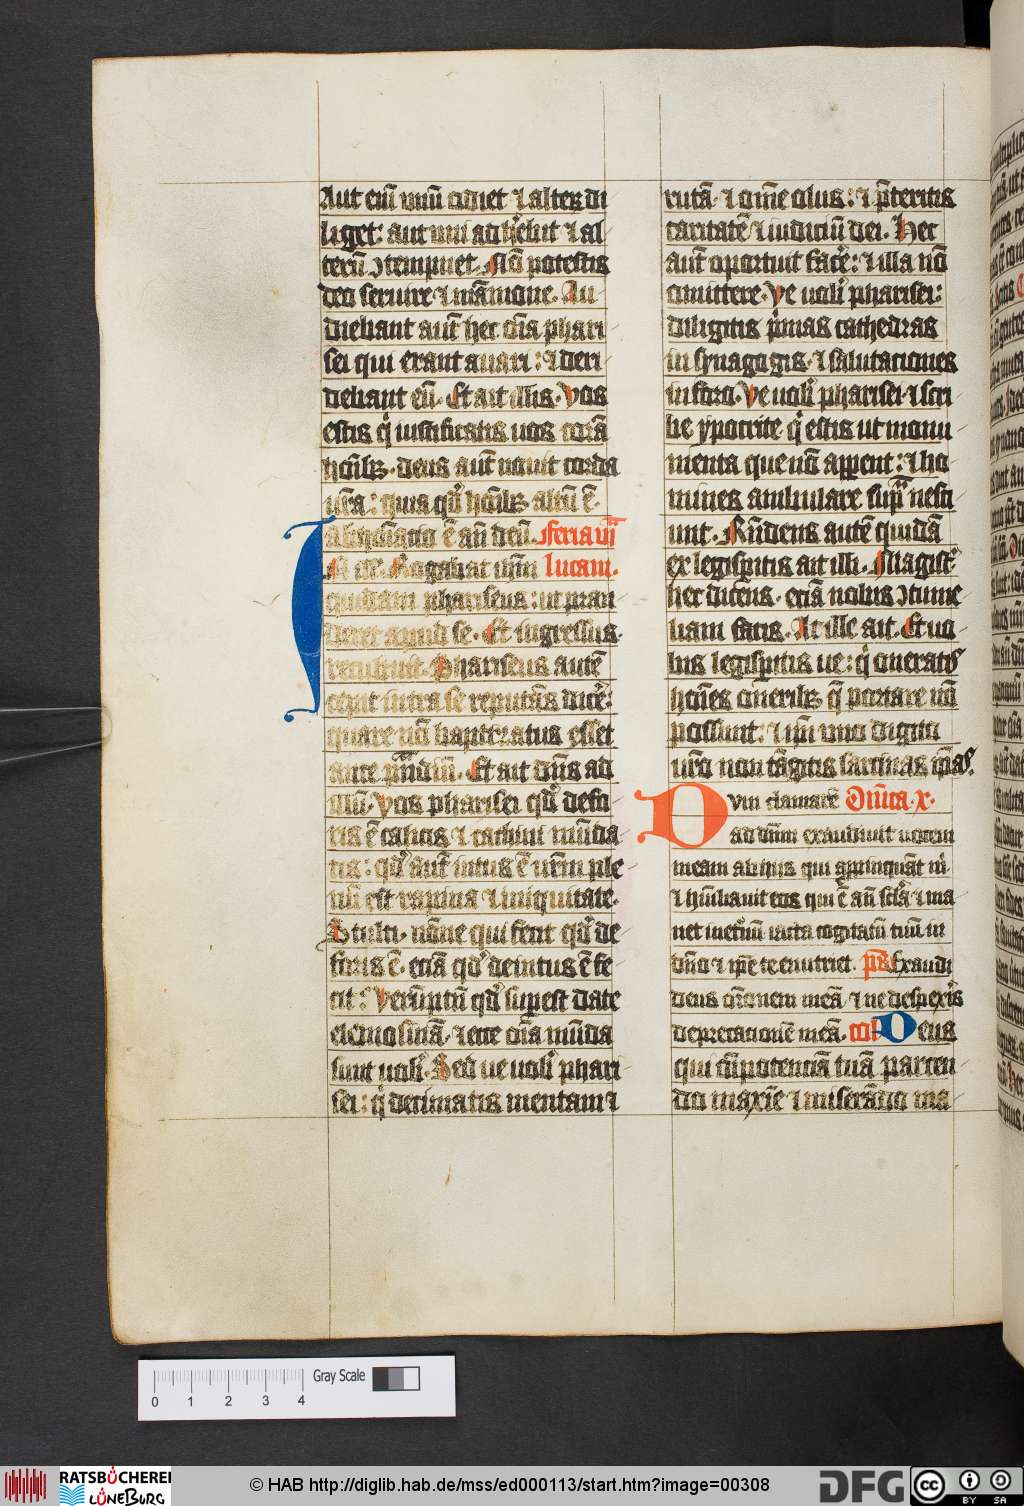 Aut eni᷑ vnu᷑ odiet ⁊ alteꝝ di
liget: aut vni adhe᷑bit ⁊ al
teru᷑ ↄtempnet. No᷑ potestis
deo seruire ⁊ ma᷑mone. Au
diebant aut᷑ hec oi᷑a phari
sei qui erant auari: ⁊ deri
debant eu᷑. Et ait illis. Vos
estis q᷑ iustificatis uos cora᷑
ho᷑ib᷒. deus aut᷑ nouit corda
ur᷑a: quia qd᷑ ho᷑ib᷒ altu᷑ e᷑
abho᷑iatio e᷑ an᷑ deu᷑. feria vi᷑
IN ill᷑. Rogabat ihm᷑ lucam.
quidam phariseus: ut pran
deret apud se. Et ingressus
recubuit. Phariseus aute᷑
cepit intra se reputa᷑s dice᷑:
quare no᷑ baptizatus esset
ante pra᷑ndiu᷑. Et ait dn᷑s ad
illu᷑. Vos pharisei qd᷑ defo
ris e᷑ calicis ⁊ cathini mu᷑da
tis: qd᷑ aut᷑ intus e᷑ urm᷑ ple
nu᷑ est rapina ⁊ iniquitate.
Stulti. no᷑ne qui fecit qd᷑ de
foris e᷑. ecia᷑ qd᷑ deintus e᷑ fe
cit: Veru᷑ptn᷑ qd᷑ supest date
elemosina᷑. ⁊ ecce oi᷑a mu᷑da
sunt uob᷑. Sed ue uob᷑ phari
sei: q᷑ decimatis mentam ⁊
ruta᷑. ⁊ om᷑e olus: ⁊ p᷑teritis
caritate᷑ ⁊ iudiciu᷑ dei. Hec
aut᷑ oportuit face᷑: ⁊ illa no᷑
omittere. Ve uob᷑ pharisei:
diligitis p᷑mas cathedras
in synagogis. ⁊ salutationes
in foro. Ve uob᷑ pharisei ⁊ scri
be ypocrite q᷑ estis ut monu
menta que no᷑ appent: ⁊ ho
mines ambulare sup᷑ nesci
unt. Rn᷑dens aute᷑ quida᷑
ex legispitis ait illi. Magist᷑
hec dicens. ecia᷑ nobis ↄtume
liam facis. At ille ait. Et uo
bis legispitis ue: q᷑ oneratis
ho᷑ies onerib᷒ q᷑ portare no᷑
possunt: ⁊ ipi᷑ vno digito
ur᷑o non ta᷑gitis sarcinas ip᷑as.
Dum clamare᷑ Dn᷑ica .x.
ad dn᷑m exaudiuit uocem
meam ab hijs qui appinqua᷑t m᷑
⁊ humiliauit eos qui e᷑ an᷑ scl᷑a ⁊ ma
net inet᷑num iacta cogitatu᷑ tuu᷑ in
dn᷑o ⁊ ipe᷑ te enutriet. ps᷑ Exaudi
deus or᷑onem mea᷑ ⁊ ne despexe᷑is
deprecatione᷑ mea᷑. coll᷑ Deus
qui om᷑potencia᷑ tua᷑ parcen
do maxi᷑e ⁊ misera᷑do ma
Gray Scale
0 1 2 3 4
RATSBÜCHEREI
LÜNEBURG
© HAB http://diglib.hab.de/mss/ed000113/start.htm?image=00308
DFG
cc
BY SA